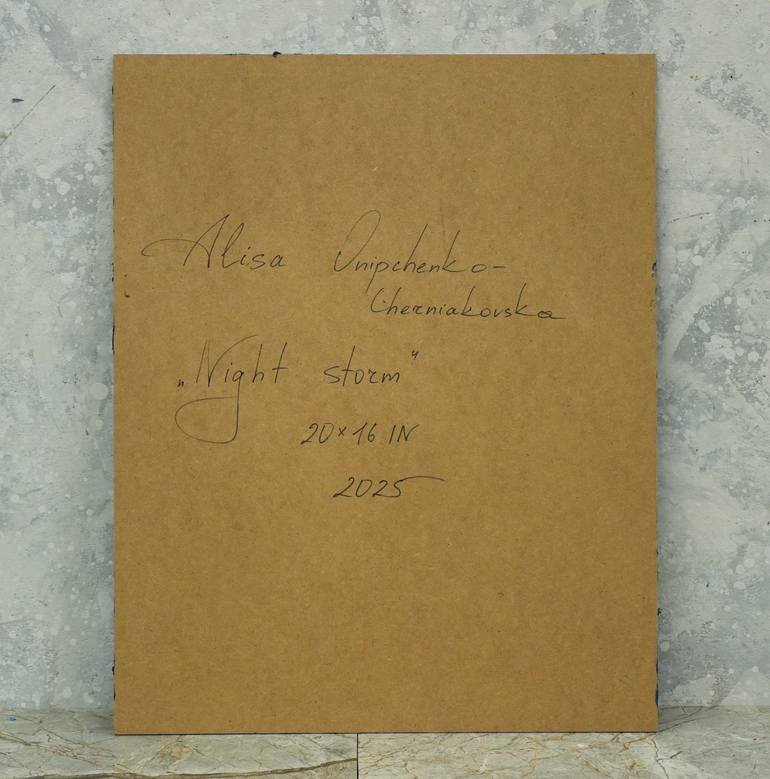 Alisa Onipchenko-
Cherniakovska
„Night storm"
20×16 IN
2025